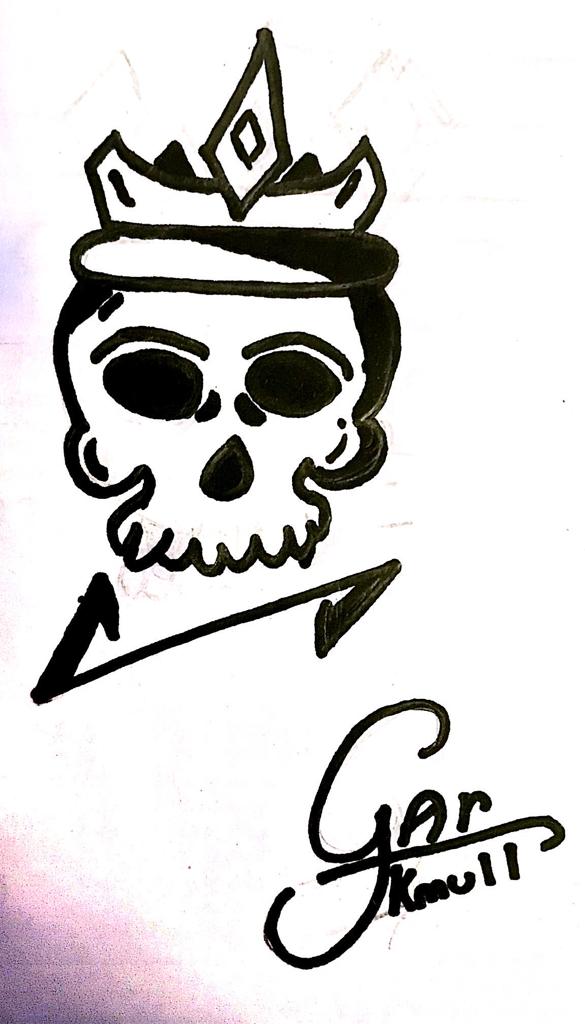 Gar
Kmull